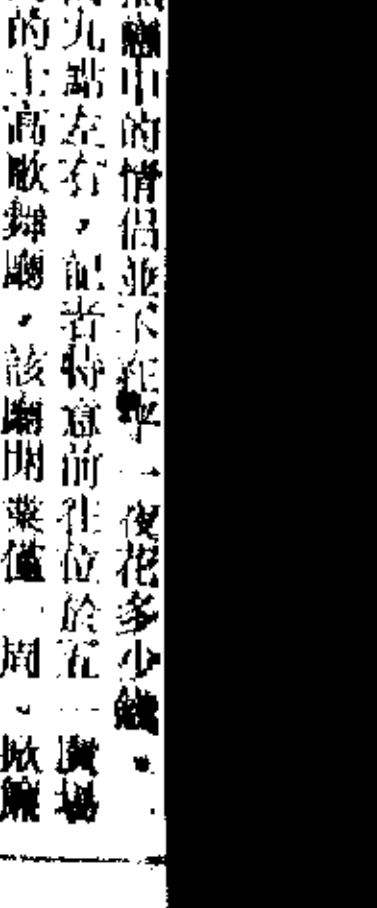 戀中的情侶並不在乎一夜花多少錢。
九點左右，記者特意前往位於五一廣場
的士高歌舞廳，該廳開業僅一周，掀簾